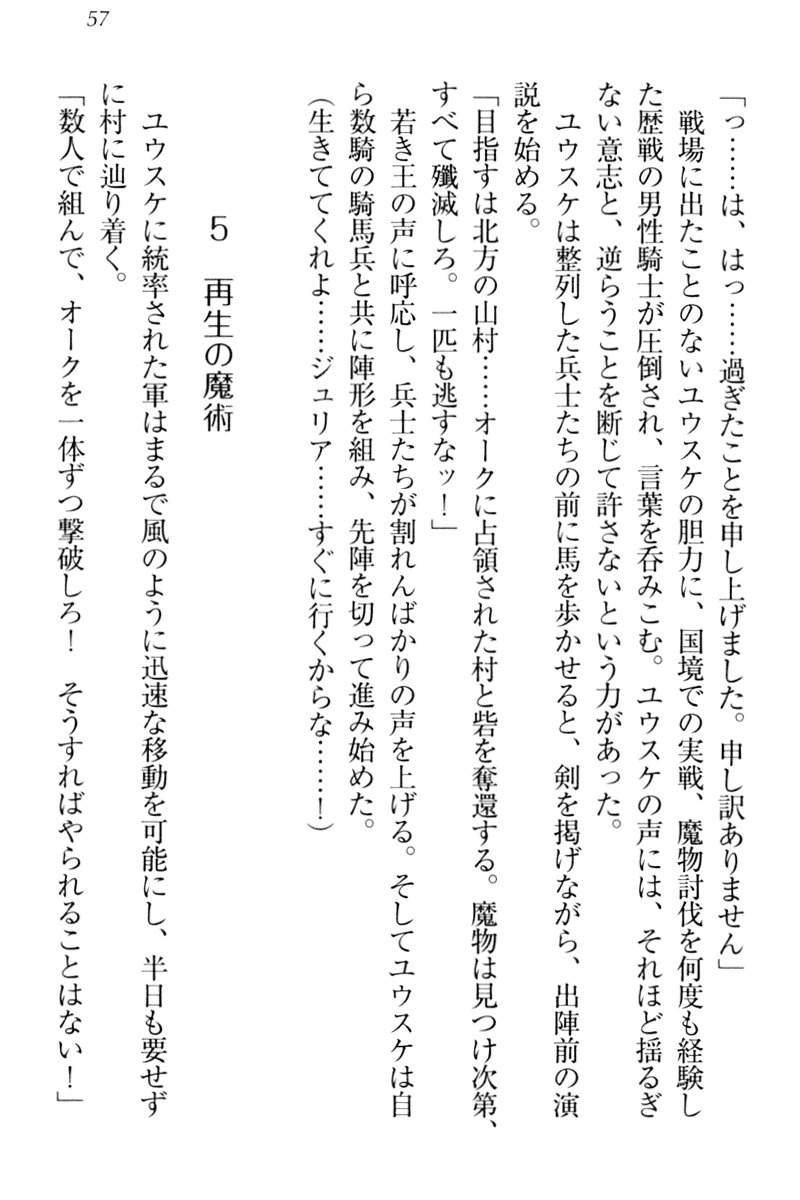 57
「っ……は、はっ……過ぎたことを申し上げました。申し訳ありません」
戦場に出たことのないユウスケの胆力に、国境での実戦、魔物討伐を何度も経験し
た歴戦の男性騎士が圧倒され、言葉を呑みこむ。ユウスケの声には、それほど揺るぎ
ない意志と、逆らうことを断じて許さないという力があった。
ユウスケは整列した兵士たちの前に馬を歩かせると、剣を掲げながら、出陣前の演
説を始める。
「目指すは北方の山村……オークに占領された村と砦を奪還する。魔物は見つけ次第、
すべて殲滅しろ。一匹も逃すなッ！」
若き王の声に呼応し、兵士たちが割れんばかりの声を上げる。そしてユウスケは自
ら数騎の騎馬兵と共に陣形を組み、先陣を切って進み始めた。
（生きててくれよ……ジュリア……すぐに行くからな……！）
5　再生の魔術
ユウスケに統率された軍はまるで風のように迅速な移動を可能にし、半日も要せず
に村に辿り着く。
「数人で組んで、オークを一体ずつ撃破しろ！　そうすればやられることはない！」